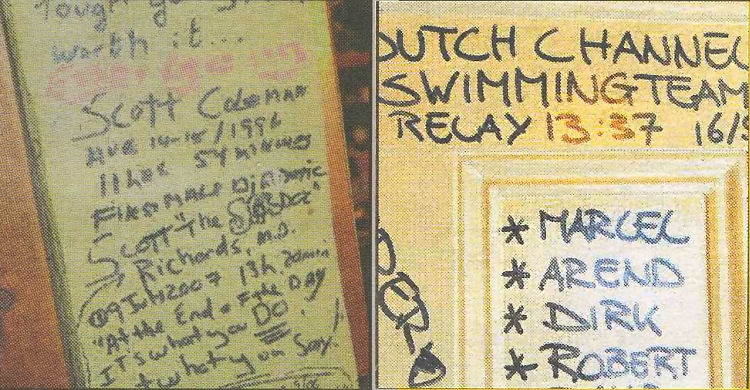 Tough
worth it...
Scott Coleman
AUG 14-15/1996
11 hrs 54 minutes
First male Diabetic
Scott "The
Richards, M.D.
@ 9 July 2007 13h 20min
"At the End of the DAY
IT's what you DO.
what you Say!
DUTCH CHANNEL
SWIMMING TEAM
RELAY 13:37 16/8
* MARCEL
* AREND
* DIRK
* ROBERT